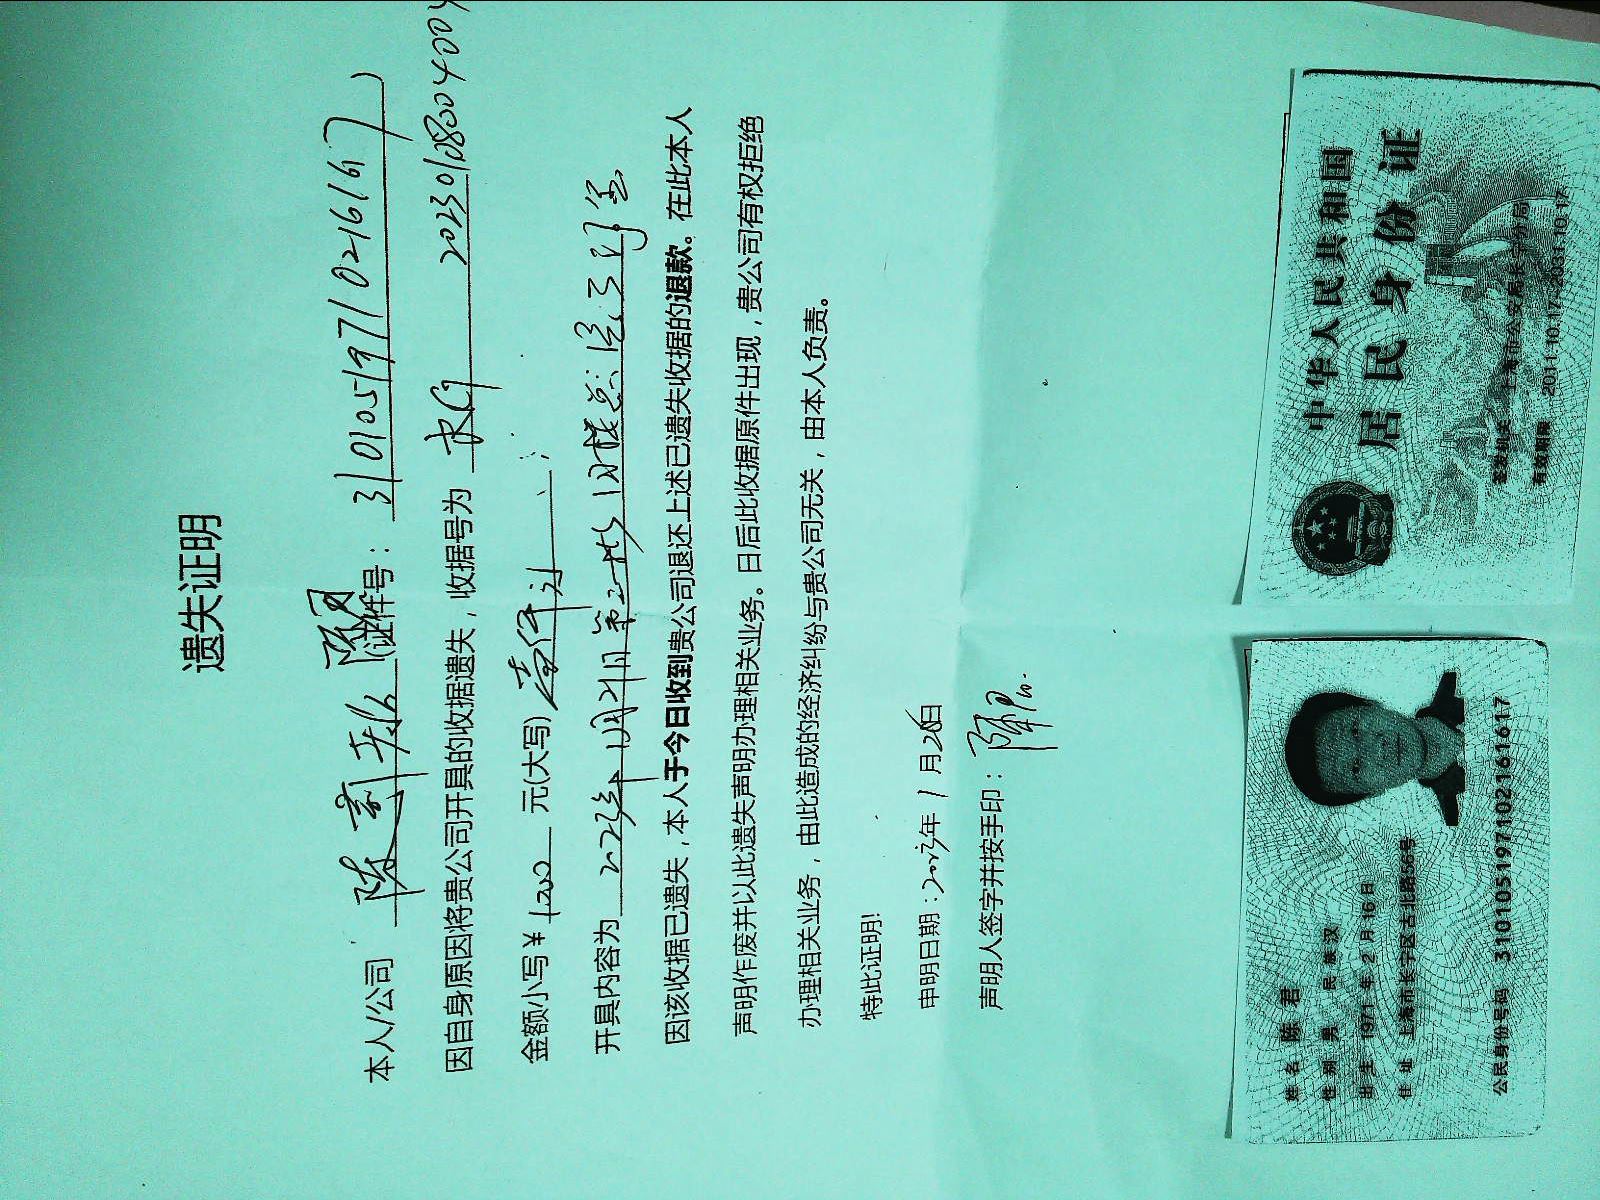 遗失证明
本人/公司 (证件号: 310105197102161617)
因自身原因将贵公司开具的收据遗失,收据号为 2023010800400
金额小写¥ 1200 元(大写)
开具内容为 月21日第
因该收据已遗失,本人于今日收到贵公司退还上述已遗失收据的退款。在此本人
声明作废并以此遗失声明办理相关业务。日后此收据原件出现,贵公司有权拒绝
办理相关业务,由此造成的经济纠纷与贵公司无关,由本人负责。
特此证明!
申明日期:2023年1月26日
声明人签字并按手印:陈
姓名 陈君
性别 男 民族 汉
出生 1971年2月16日
住址 上海市长宁区古北路56号
公民身份号码 310105197102161617
中华人民共和国
居民身份证
签发机关 上海市公安局长宁分局
有效期限 2011.10.17-2031.10.17